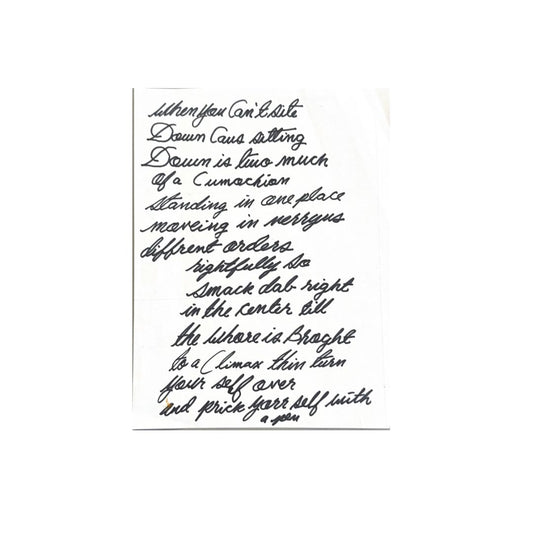 when you Can't site
Down Caus sitting
Down is two much
of a Cumochion
standing in one place
moveing in verryus
diffrent orders
rightfully so
smack dab right
in the center till
the whore is Broght
to a Climax thin turn
your self over
and prick yorr self with
a pen